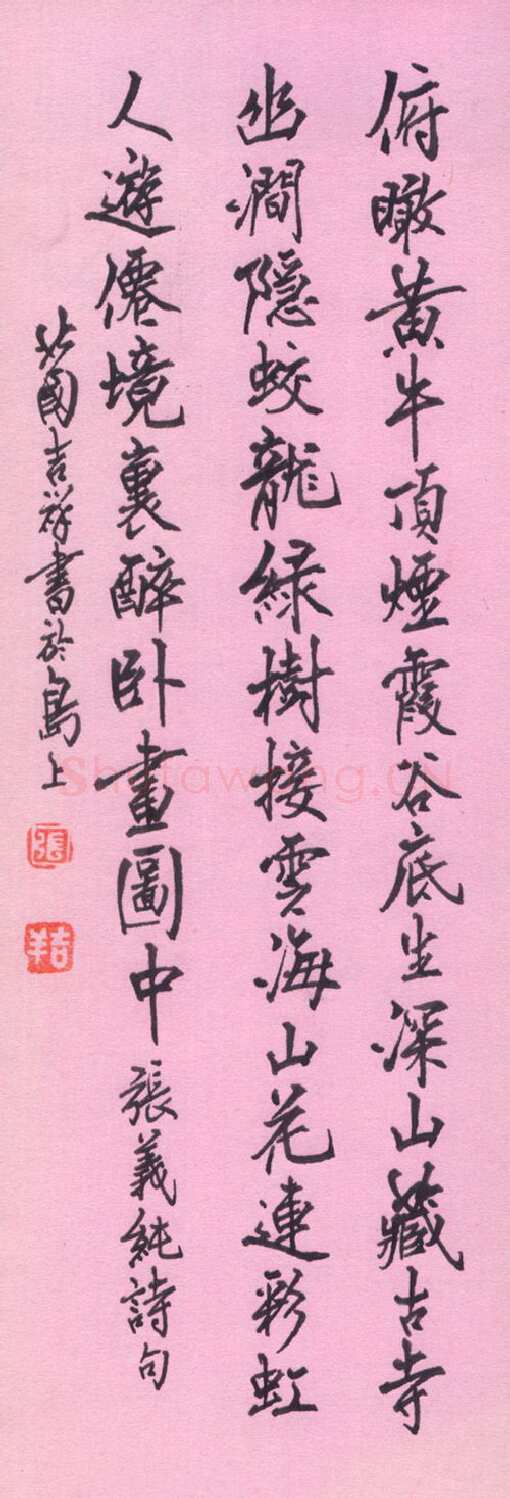 俯瞰黄牛頂煙霞谷底生深山藏古寺
幽澗隱蛟龍緑樹接雲海山花連彩虹
人遊僊境裏醉卧畫圖中張義純詩句
國吉祥書於島上
張
吉羊